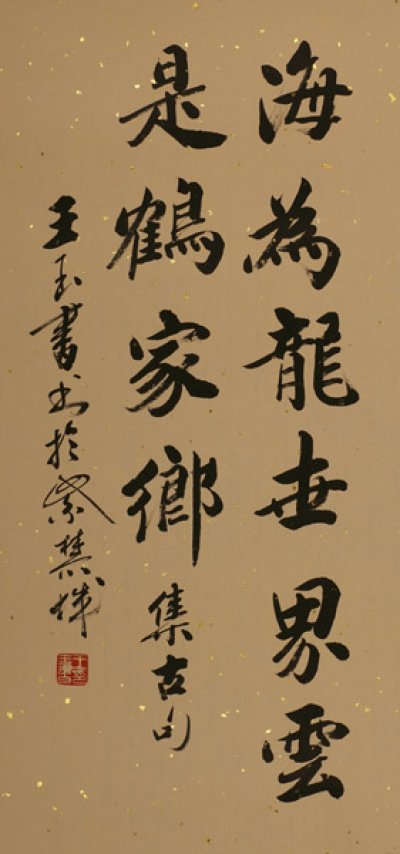 海為龍世界雲
是鶴家鄉集古句
王玉書書於紫禁城